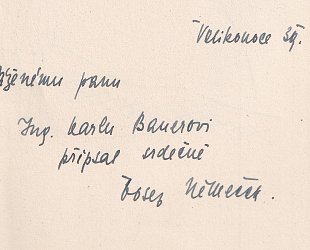 Velikonoce 39.
Váženému panu
Ing. Karlu Bauerovi
připsal srdečně
Josef Němeček.